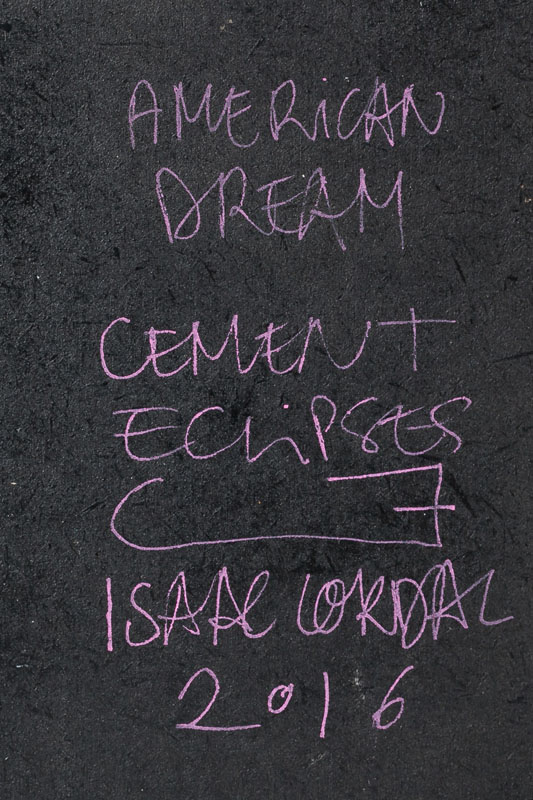 AMERICAN
DREAM
CEMENT
ECLIPSES
ISAAC CORDAL
2016